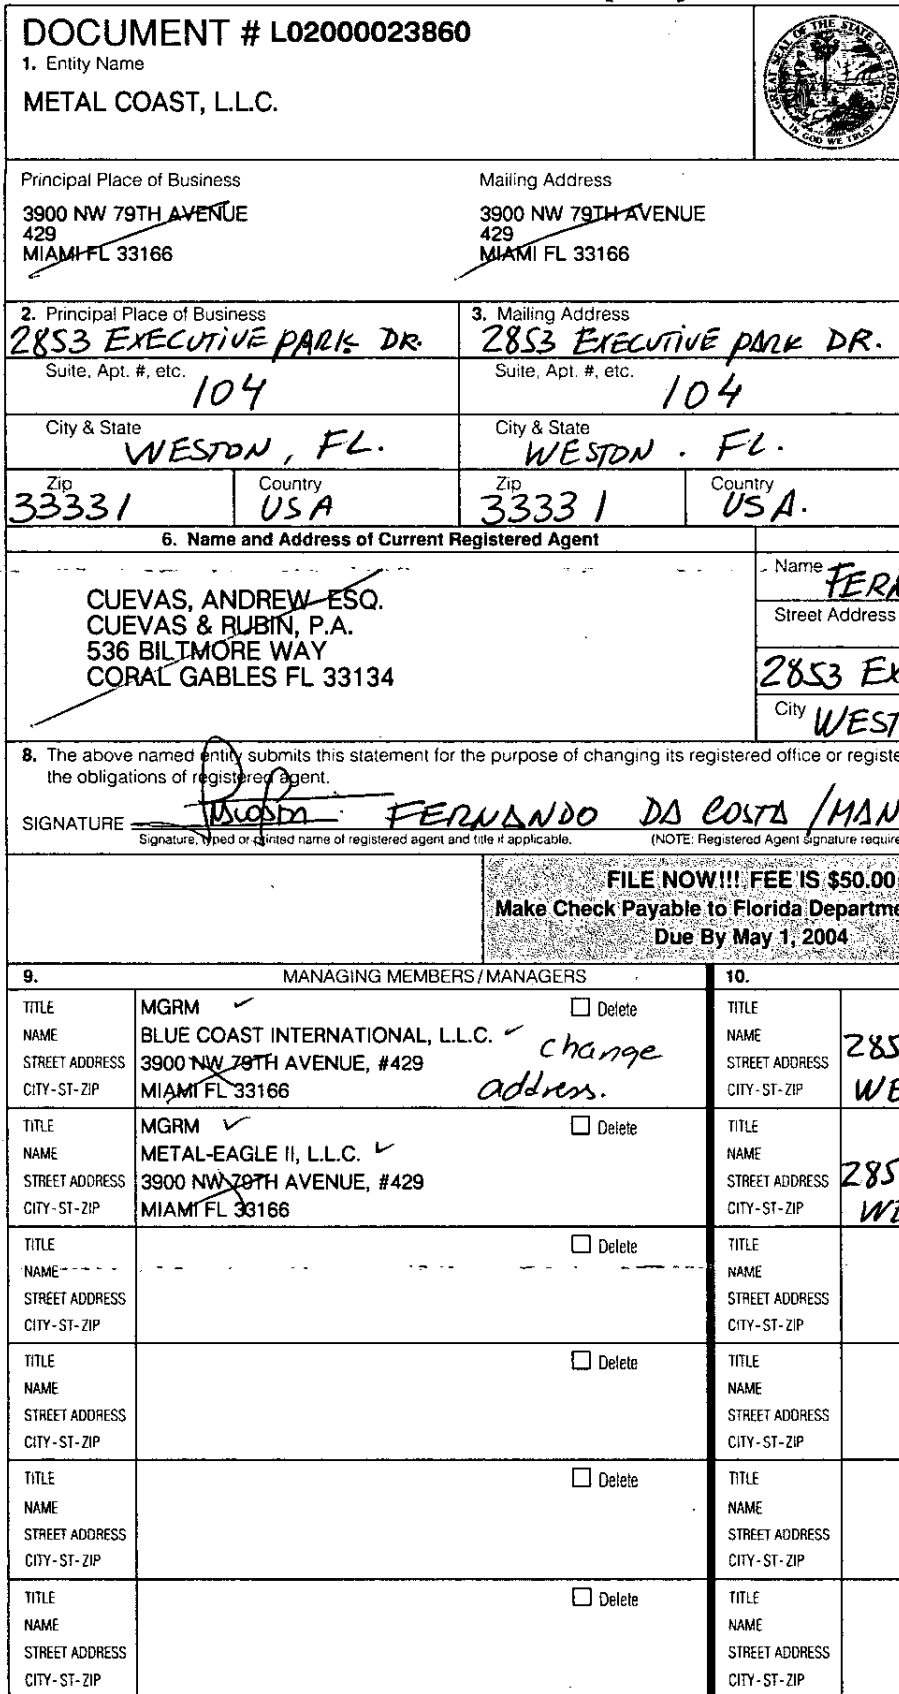 DOCUMENT # L02000023860
1. Entity Name
METAL COAST, L.L.C.
GREAT SEAL OF THE STATE OF FLORIDA
IN GOD WE TRUST
Principal Place of Business
3900 NW 79TH AVENUE
429
MIAMI FL 33166
Mailing Address
3900 NW 79TH AVENUE
429
MIAMI FL 33166
2. Principal Place of Business
2853 EXECUTIVE PARK DR.
Suite, Apt. #, etc.
104
City & State
WESTON, FL.
Zip
33331
Country
USA
3. Mailing Address
2853 EXECUTIVE PARK DR.
Suite, Apt. #, etc.
104
City & State
WESTON. FL.
Zip
33331
Country
USA.
6. Name and Address of Current Registered Agent
CUEVAS, ANDREW ESQ.
CUEVAS & RUBIN, P.A.
536 BILTMORE WAY
CORAL GABLES FL 33134
Name FERN
Street Address
2853 EX
City WEST
8. The above named entity submits this statement for the purpose of changing its registered office or registe
the obligations of registered agent.
SIGNATURE FERNANDO DA COSTA /MAN
Signature, typed or printed name of registered agent and title if applicable. (NOTE: Registered Agent signature require
FILE NOW!!! FEE IS $50.00
Make Check Payable to Florida Departme
Due By May 1, 2004
9. MANAGING MEMBERS/MANAGERS
TITLE MGRM Delete
NAME BLUE COAST INTERNATIONAL, L.L.C.
STREET ADDRESS 3900 NW 79TH AVENUE, #429 change
CITY-ST-ZIP MIAMI FL 33166 address.
TITLE MGRM Delete
NAME METAL-EAGLE II, L.L.C.
STREET ADDRESS 3900 NW 79TH AVENUE, #429
CITY-ST-ZIP MIAMI FL 33166
TITLE Delete
NAME
STREET ADDRESS
CITY-ST-ZIP
TITLE Delete
NAME
STREET ADDRESS
CITY-ST-ZIP
TITLE Delete
NAME
STREET ADDRESS
CITY-ST-ZIP
TITLE Delete
NAME
STREET ADDRESS
CITY-ST-ZIP
10.
TITLE
NAME 285
STREET ADDRESS
CITY-ST-ZIP WE
TITLE
NAME
STREET ADDRESS 285
CITY-ST-ZIP WE
TITLE
NAME
STREET ADDRESS
CITY-ST-ZIP
TITLE
NAME
STREET ADDRESS
CITY-ST-ZIP
TITLE
NAME
STREET ADDRESS
CITY-ST-ZIP
TITLE
NAME
STREET ADDRESS
CITY-ST-ZIP